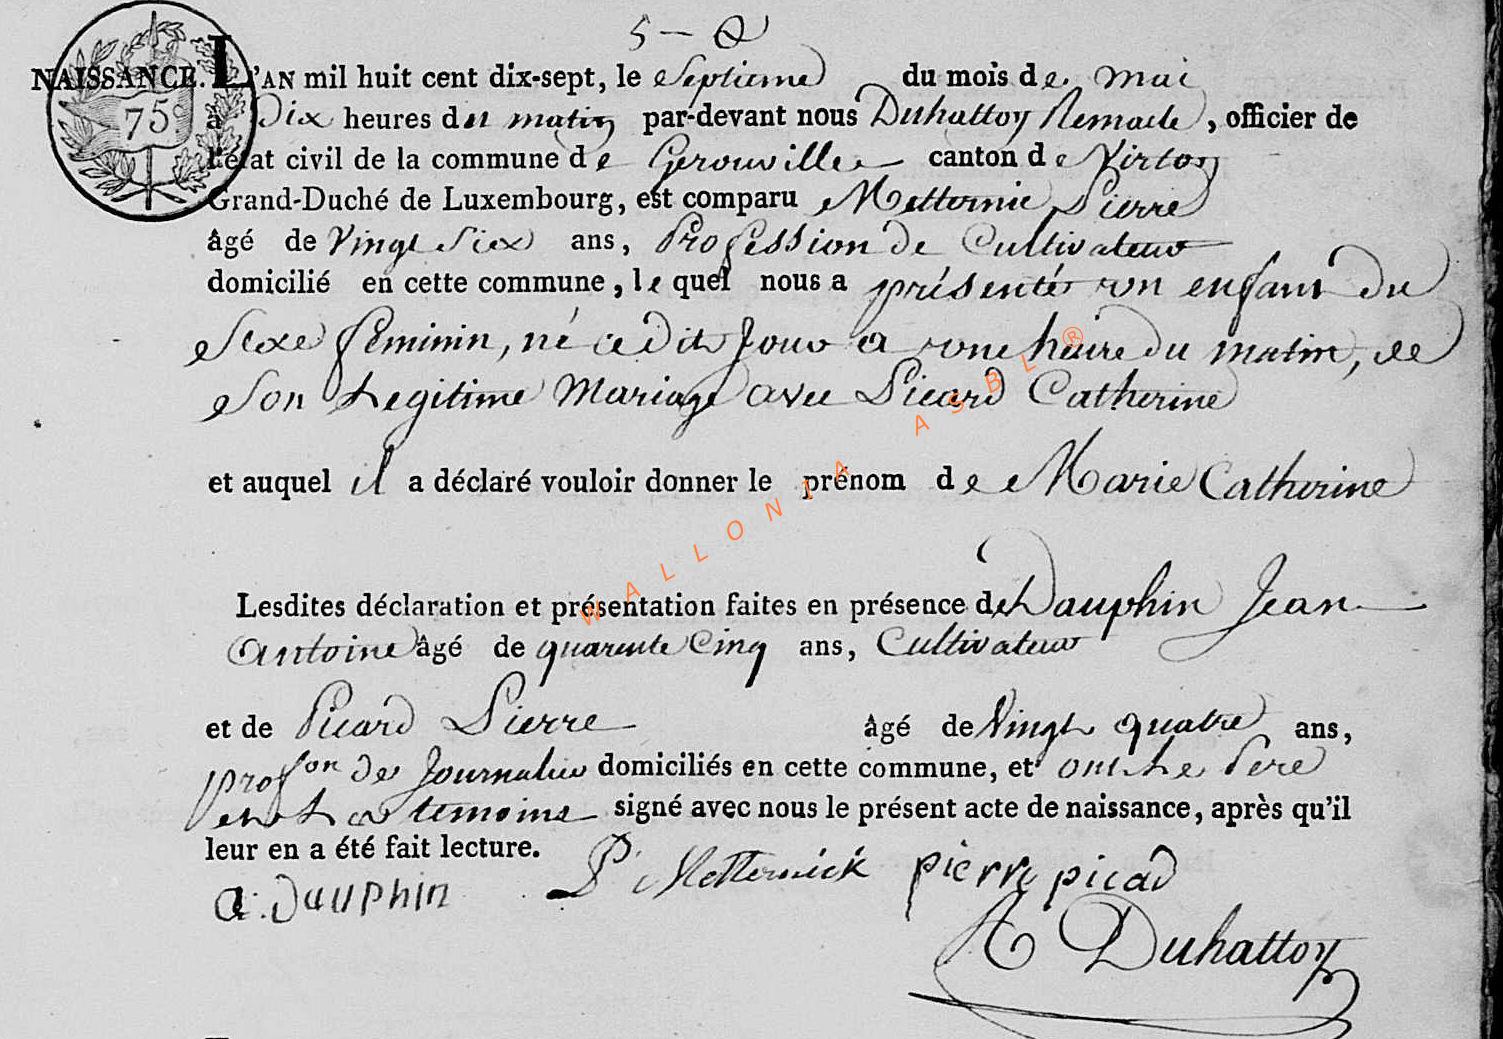 5 - Q
NAISSANCE. L'AN mil huit cent dix-sept, le Septieme du mois de mai
75c
a Dix heures du matin par-devant nous Duhattoy Remacle, officier de
l'état civil de la commune de Gerouville canton de Virton
Grand-Duché de Luxembourg, est comparu Metternic Pierre
âgé de Vingt Siex ans, Profession de Cultivateur
domicilié en cette commune, le quel nous a présenté un enfant Du
Sexe feminin, né cedit Jour a une heure Du matin, de
Son Legitime Mariage avec Picard Catherine
et auquel il a déclaré vouloir donner le prénom de Marie Catherine
Lesdites déclaration et présentation faites en présence de Dauphin Jean
Antoine âgé de quarente Cinq ans, Cultivateur
et de Picard Pierre âgé de Vingt quatre ans,
profon de Journalier domiciliés en cette commune, et ont Le Pere
et Les temoins signé avec nous le présent acte de naissance, après qu'il
leur en a été fait lecture.
a: Dauphin P Metternick pierre picad
Duhattoy
WALLONIA ASBL ®